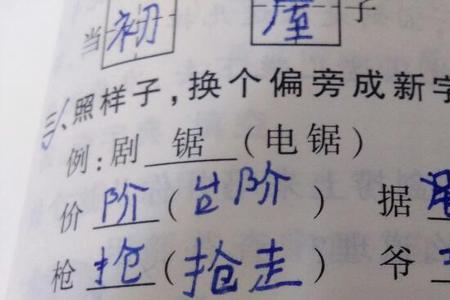 当初 厘子
三、照样子，换个偏旁成新字
例：剧 锯 (电锯)
价 阶 (台阶) 据
枪 抢 (抢走) 爷